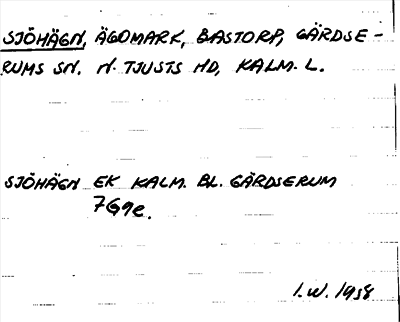 SJÖHÄGN, ÄGOMARK, BASTORP, GÄRDSE-
RUMS SN. N. TJUSTS HD, KALM. L.
SJÖHÄGN EK KALM. BL. GÄRDSERUM
7G9e.
I.W. 1958